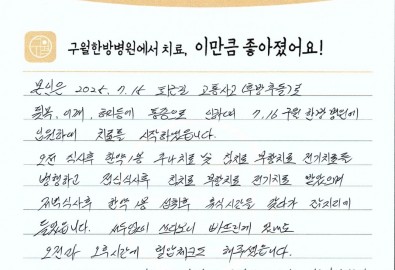 구월한방병원에서 치료, 이만큼 좋아졌어요!
본인은 2025. 7. 15 퇴근길 교통사고(후방추돌)로
뒷목, 어깨, 허리등에 통증으로 인하여 7.16 구월한방병원에
입원하여 치료를 시작하였습니다.
오전 식사후 한약1봉 추나치료 및 침치료 부항치료 전기치료를
병행하고 점심식사후 침치료 부항치료 전기치료 받았으며
저녁식사후 한약 1봉 섭취후 휴식시간을 갖다가 잠자리에
들었습니다. 쓰다보니 바쁘트게 있네요
오전과 오후시간에 혈압체크도 해주셨습니다.